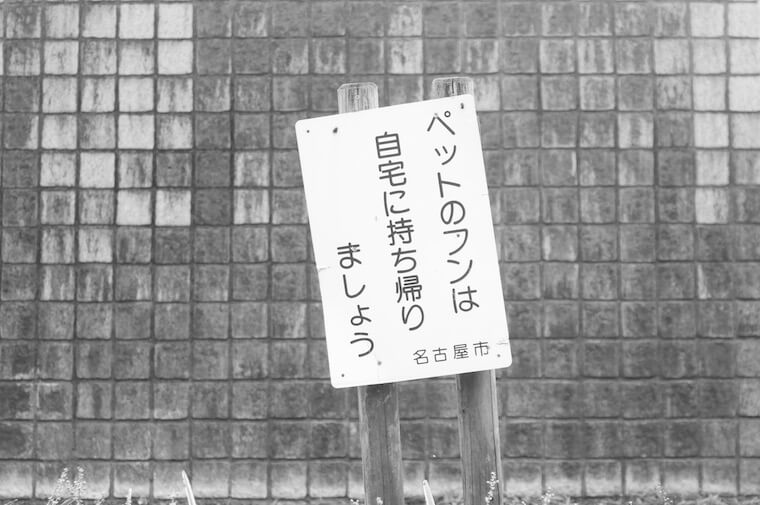 ペットのフンは
自宅に持ち帰り
ましょう
名古屋市